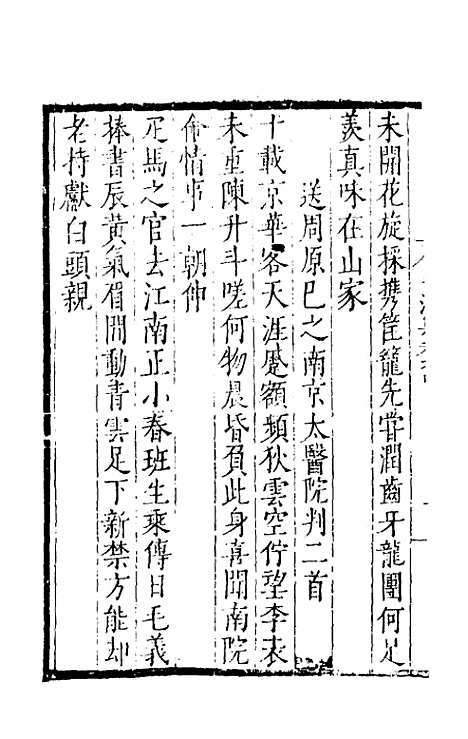 未開花旋採攜筐籠先嘗潤齒牙龍團何足
羡真味在山家
送周原巳之南京太醫院判二首
十載京華客天涯蹙額頻狄雲空佇望李表
未重陳升斗嗟何物晨昏負此身喜聞南院
命情事一朝伸
疋馬之官去江南正小春班生乘傳日毛義
捧書辰黃氣眉間動青雲足下新禁方能却
老持獻白頭親